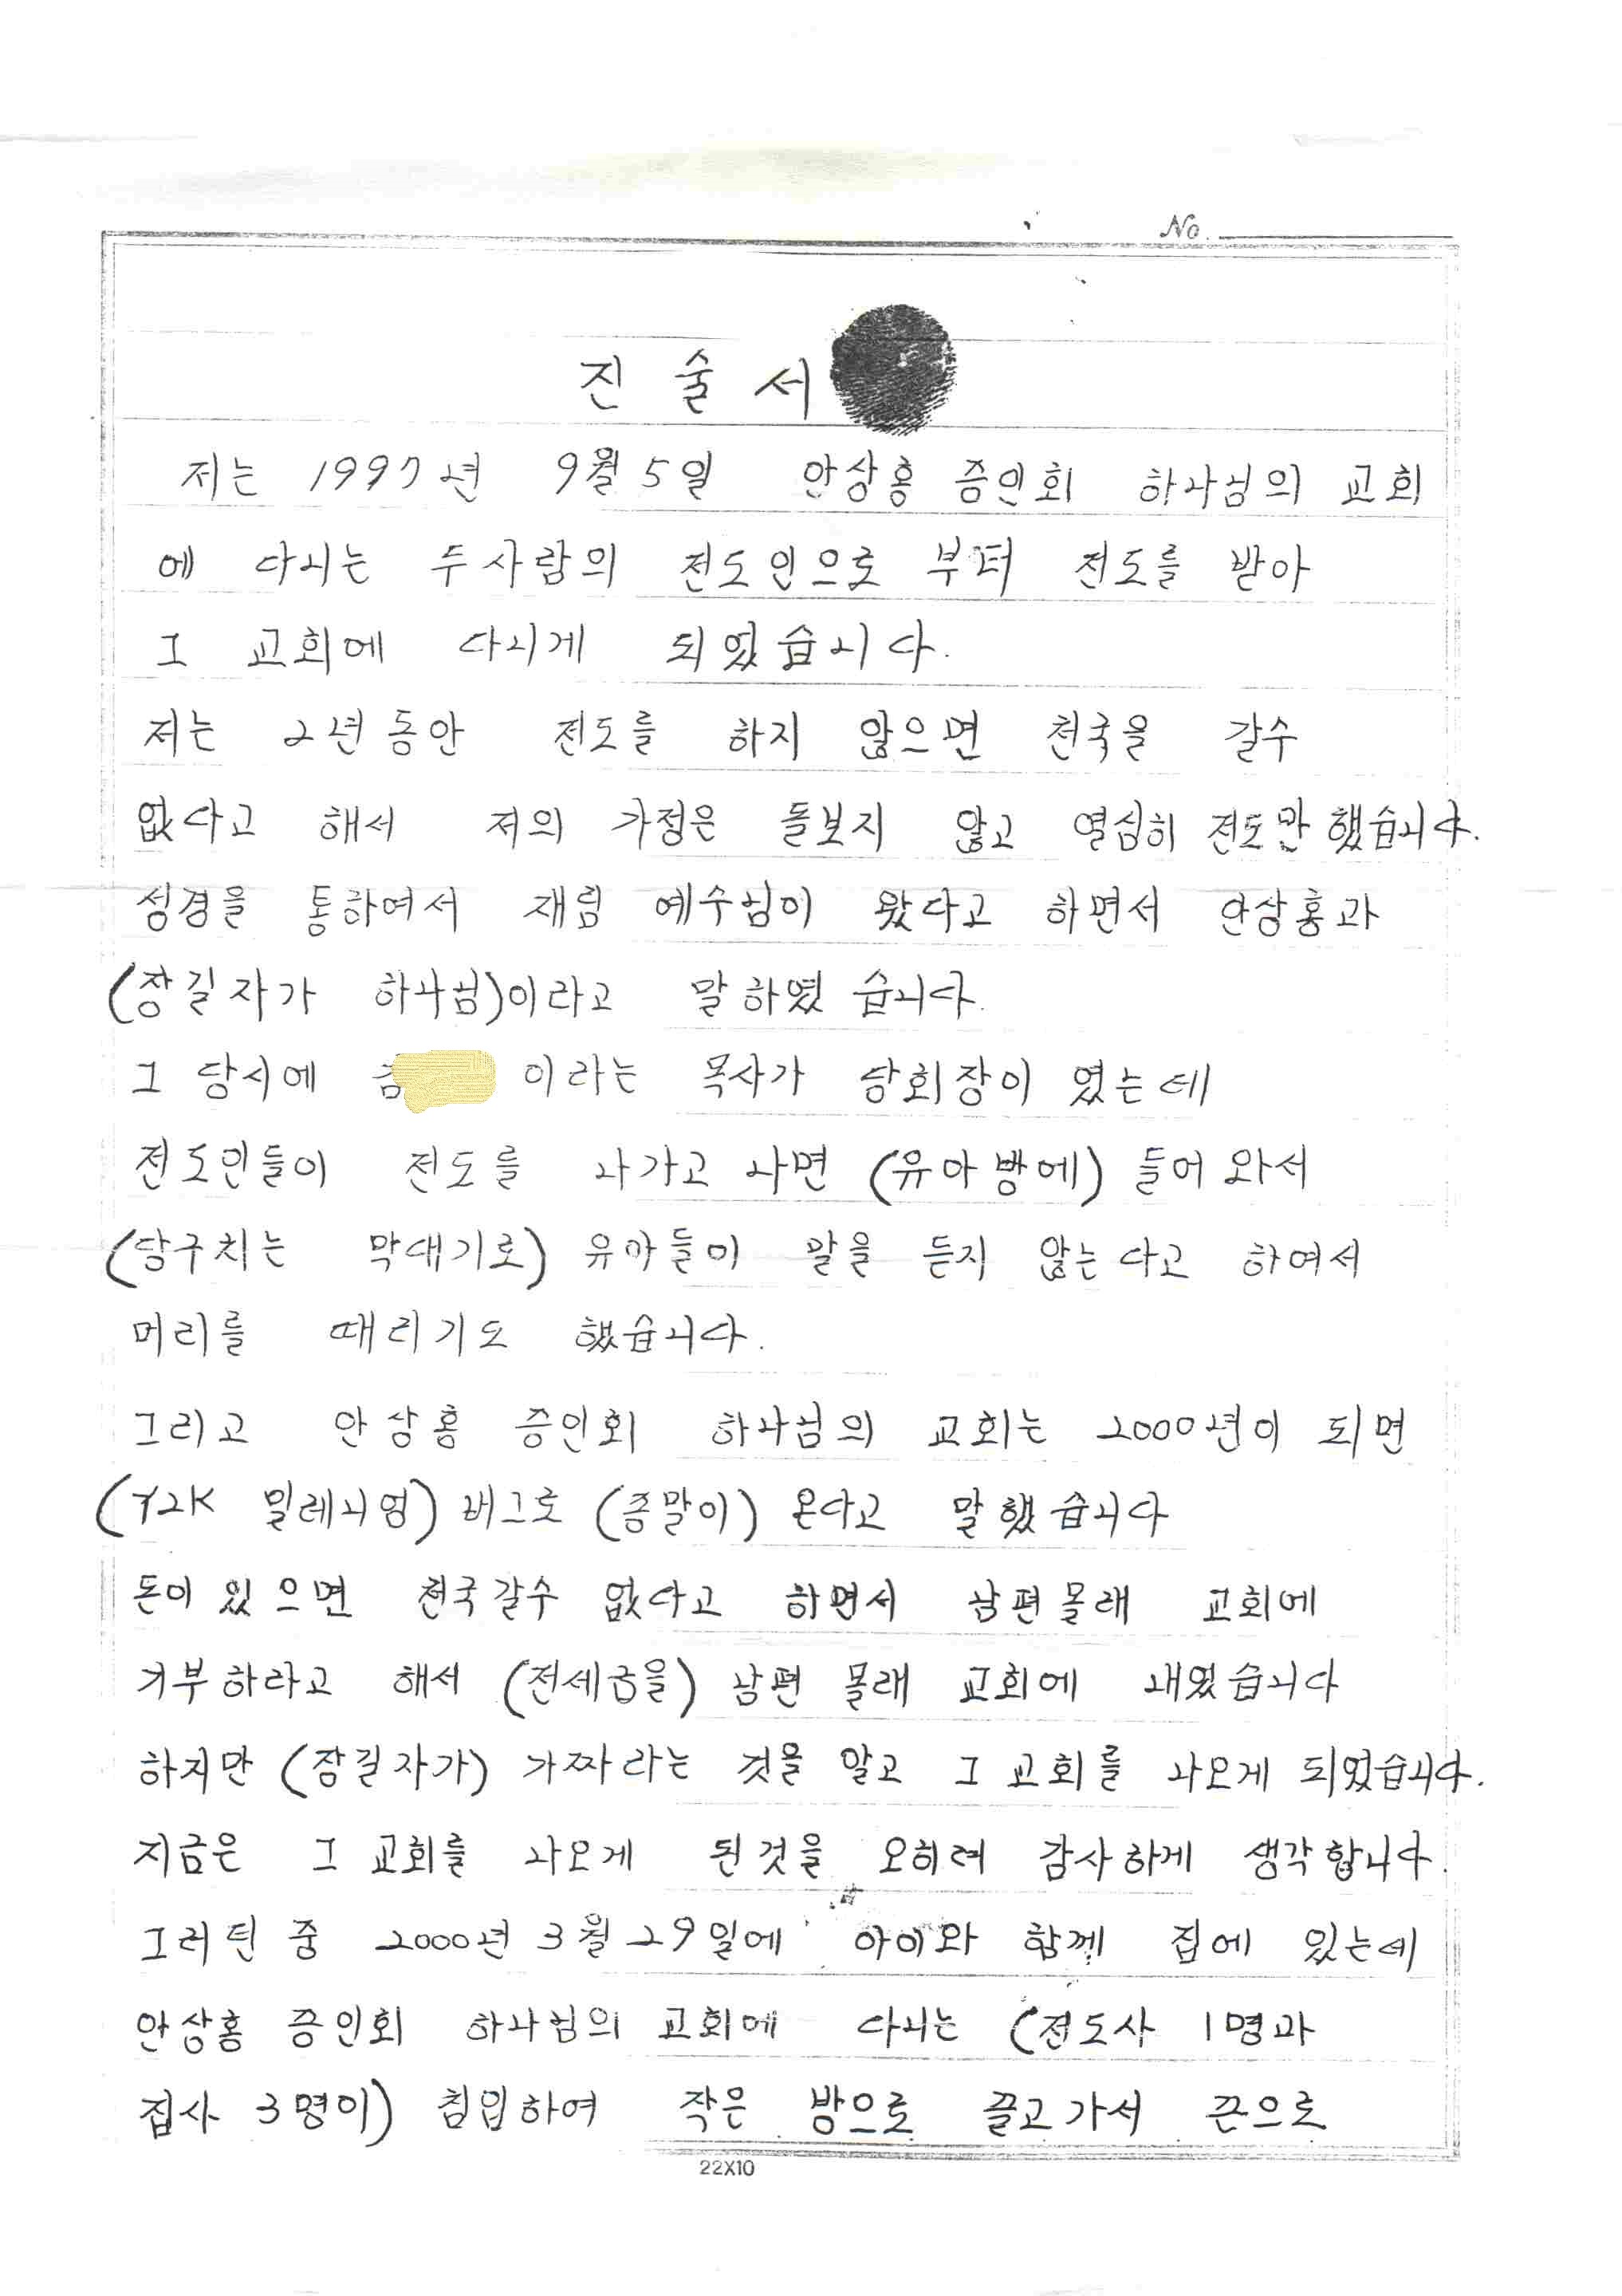 No.
진 술 서
저는 1997년 9월 5일 안상홍 증인회 하나님의 교회
에 다니는 두사람의 전도인으로 부터 전도를 받아
그 교회에 다니게 되었습니다.
저는 2년동안 전도를 하지 않으면 천국을 갈수
없다고 해서 저의 가정은 돌보지 않고 열심히 전도만 했습니다.
성경을 통하여서 재림 예수님이 왔다고 하면서 안상홍과
(장길자가 하나님)이라고 말하였습니다.
그 당시에 이라는 목사가 당회장이 였는데
전도인들이 전도를 나가고 나면 (유아방에) 들어와서
(당구치는 막대기로) 유아들이 말을 듣지 않는다고 하여서
머리를 때리기도 했습니다.
그리고 안상홍 증인회 하나님의 교회는 2000년이 되면
(Y2K 밀레니엄) 버그로 (종말이) 온다고 말했습니다
돈이 있으면 천국갈수 없다고 하면서 남편몰래 교회에
기부하라고 해서 (전세금을) 남편 몰래 교회에 내었습니다
하지만 (장길자가) 가짜라는 것을 알고 그 교회를 나오게 되었습니다.
지금은 그 교회를 나오게 된것을 오히려 감사하게 생각합니다.
그러던 중 2000년 3월 29일에 아이와 함께 집에 있는데
안상홍 증인회 하나님의 교회에 다니는 (전도사 1명과
집사 3명이) 침입하여 작은 방으로 끌고가서 끈으로
22X10